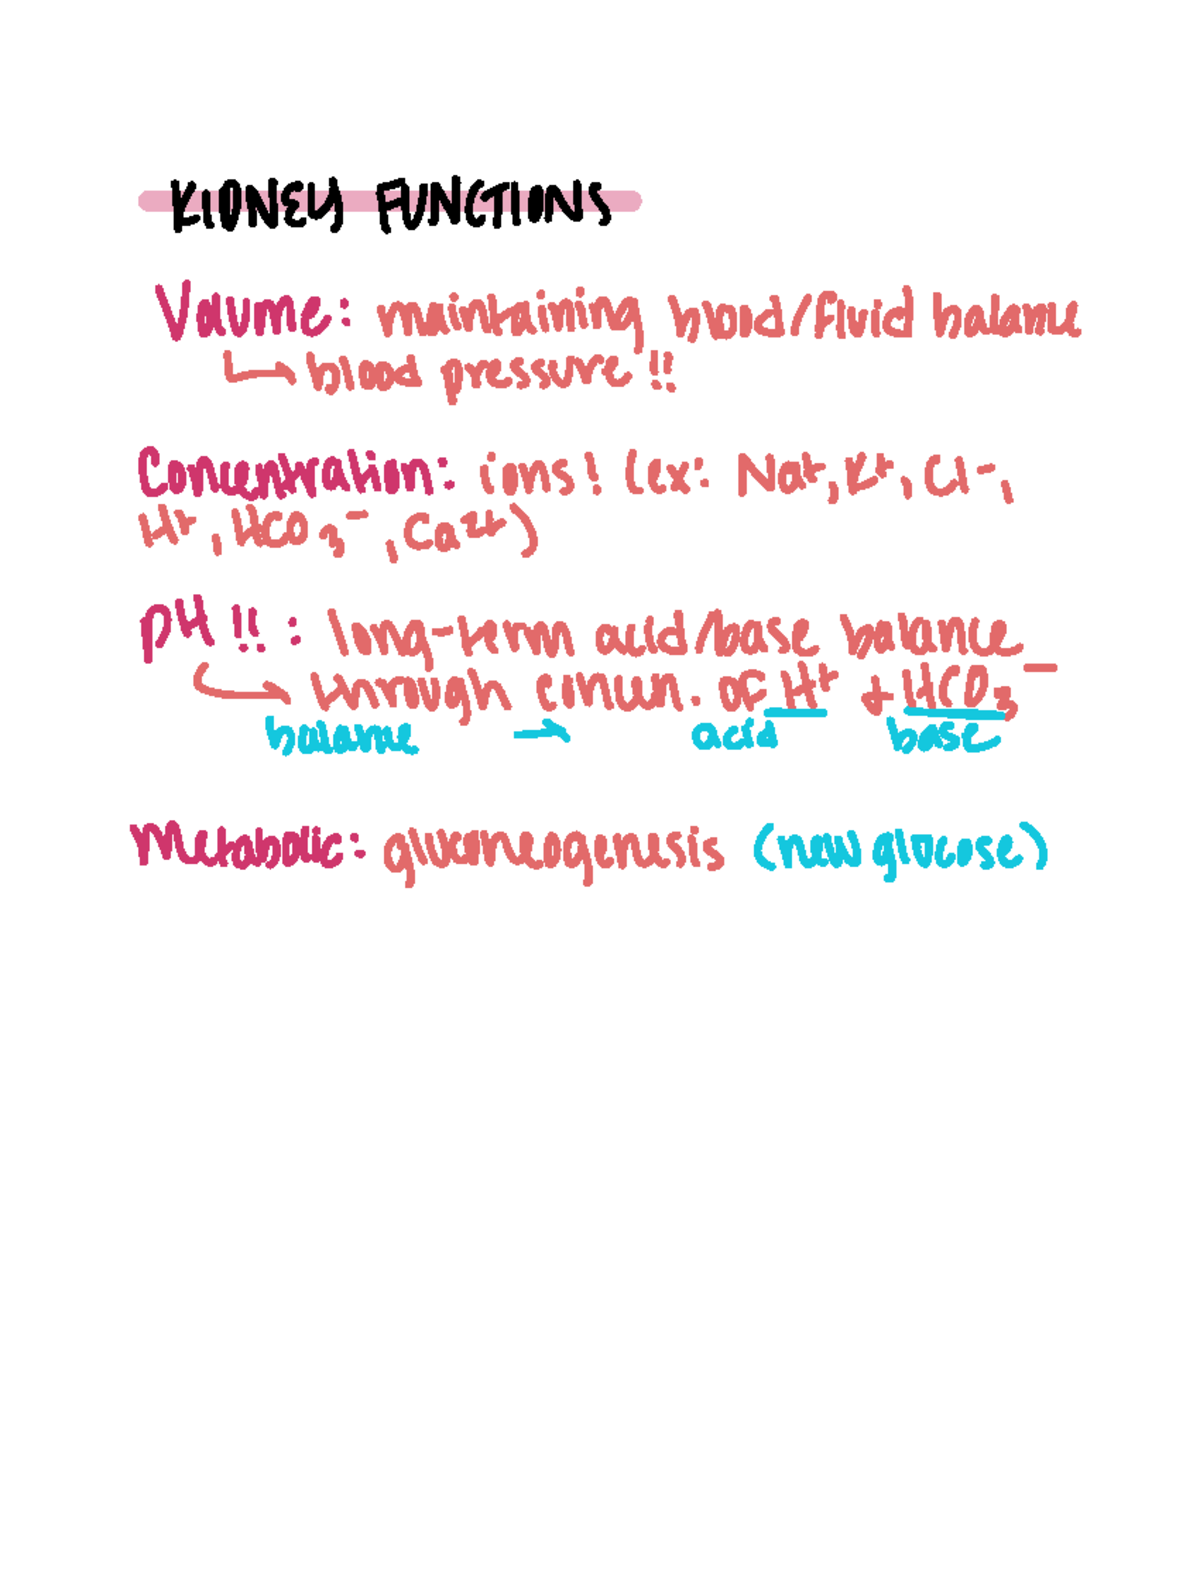 KIDNEY FUNCTIONS
Volume: maintaining blood/fluid balance
↳ blood pressure !!
Concentration: ions! (ex: Na+, K+, Cl-,
H+, HCO3-, Ca2+)
pH !! : long-term acid/base balance
↳ through concen. of H+ + HCO3-
balance → acid base
Metabolic: gluconeogenesis (new glucose)